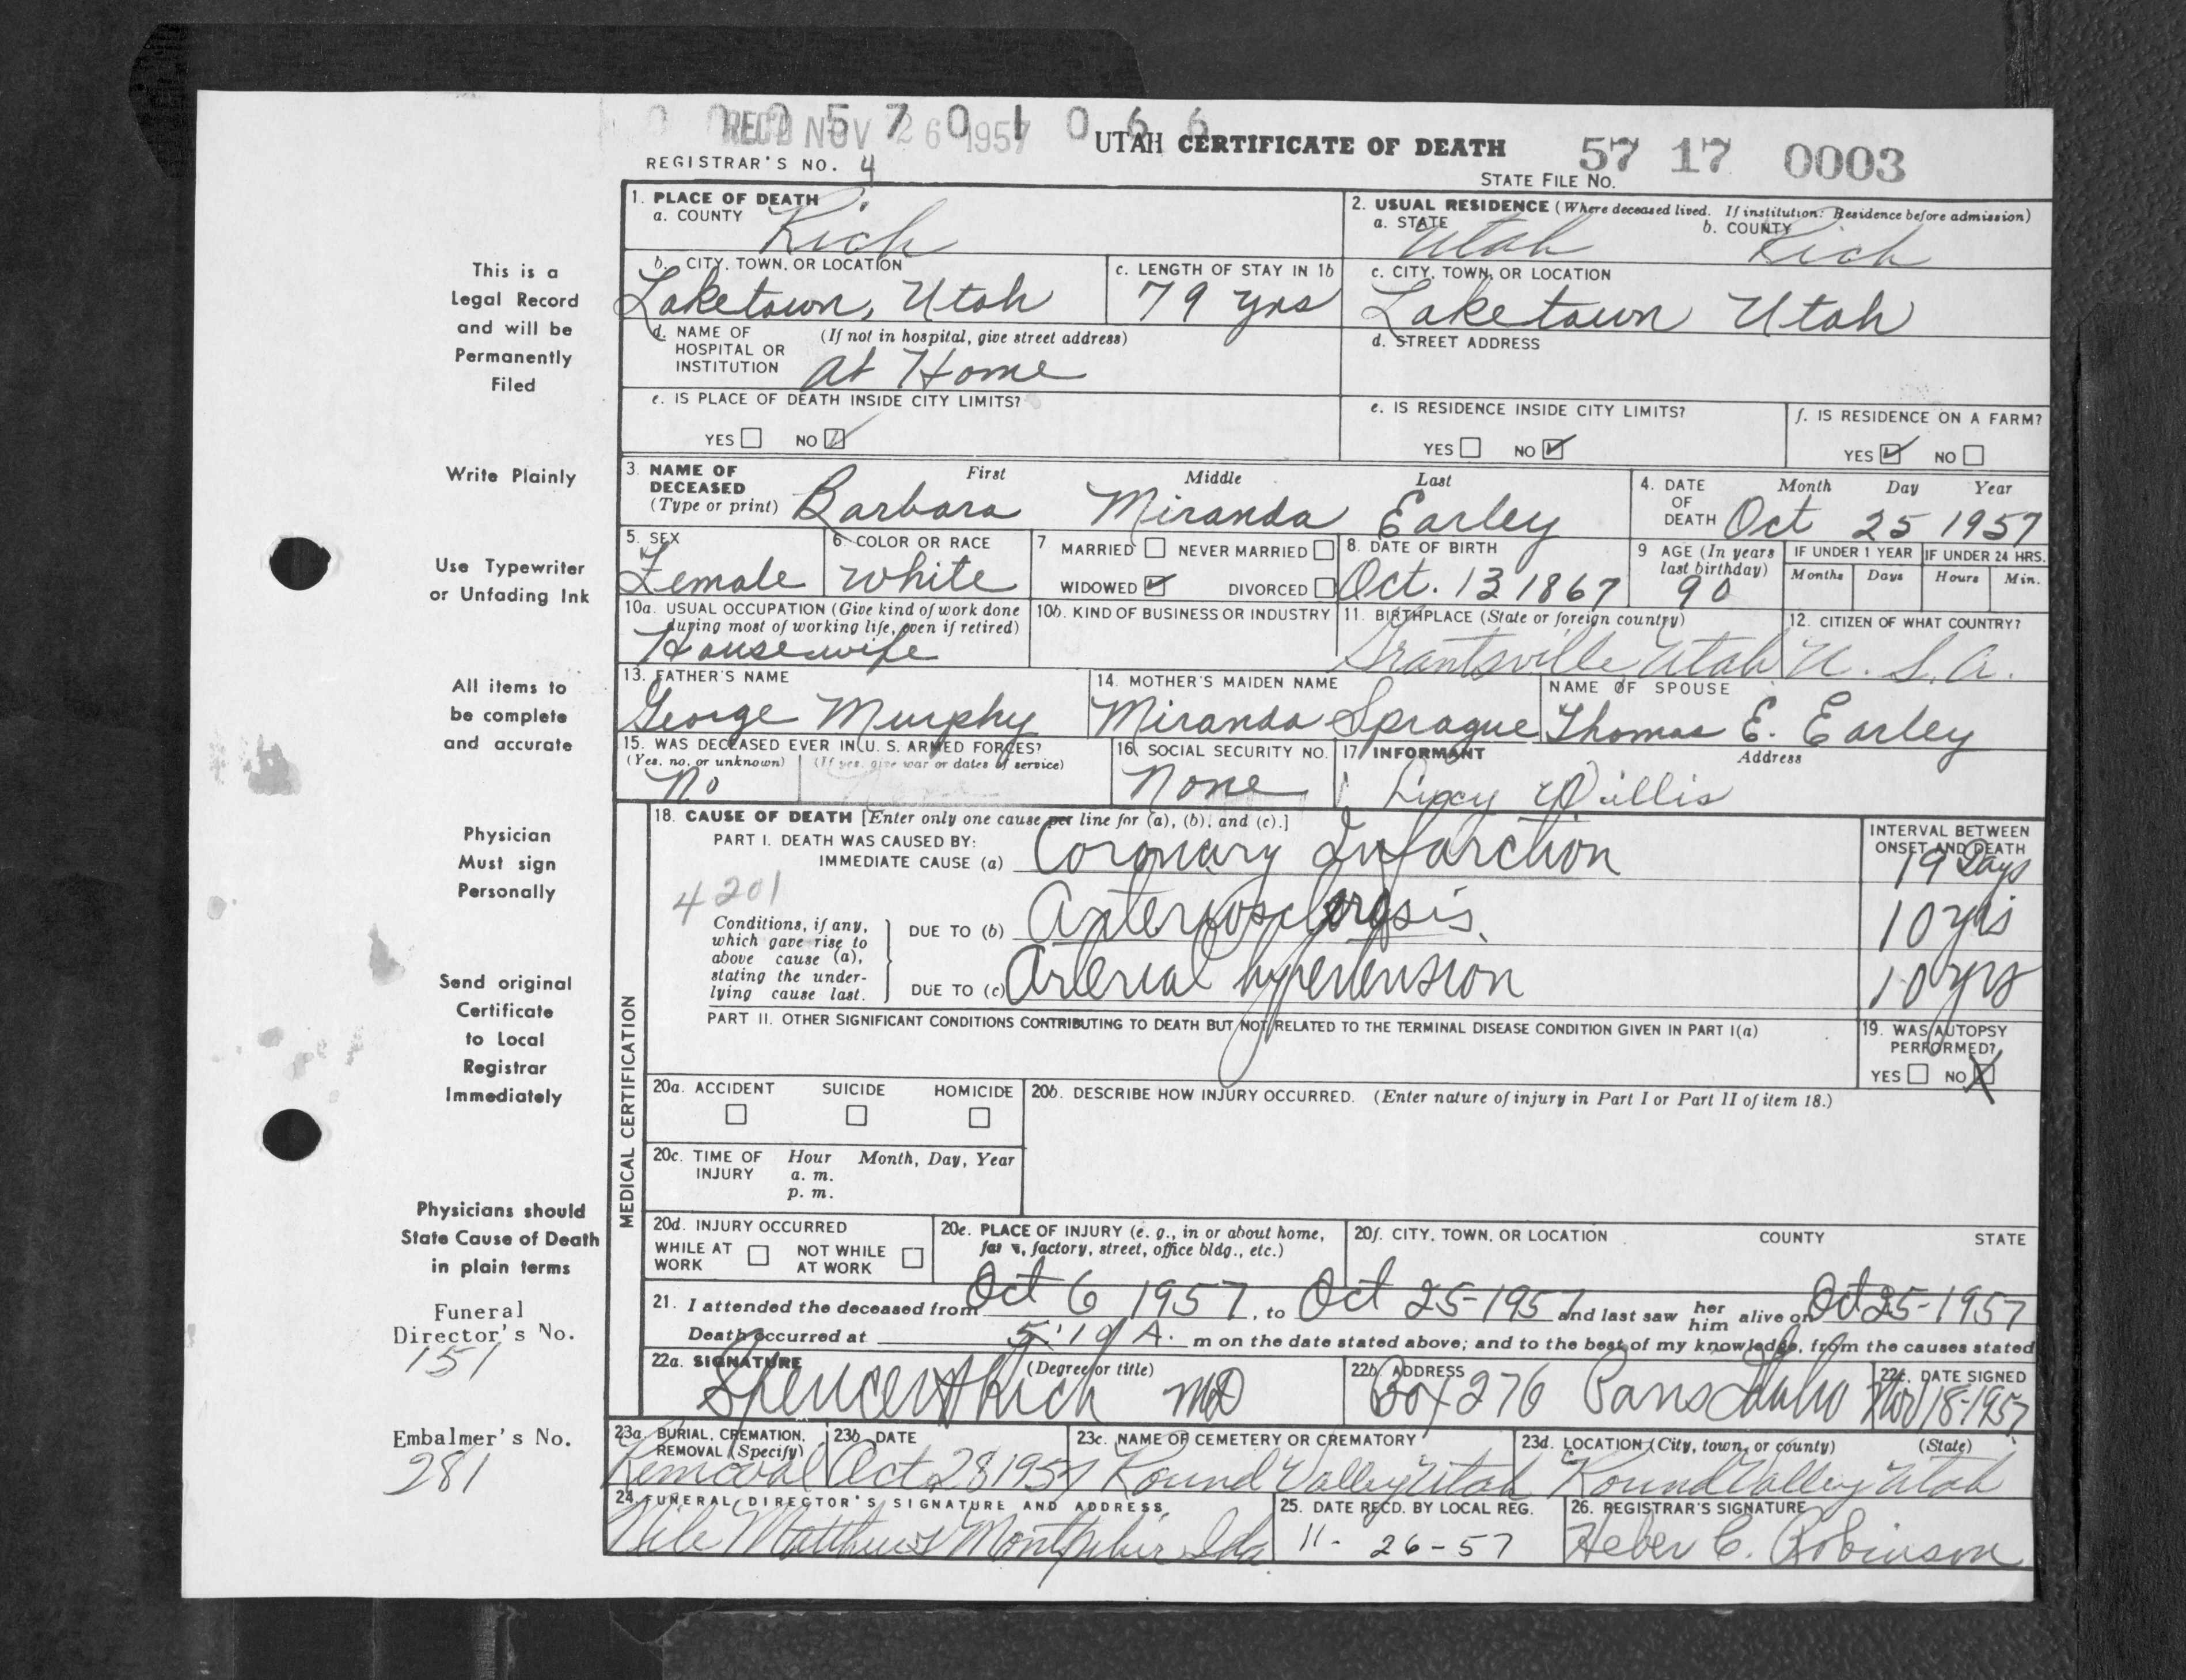 0 0 0 5 7 0 1 0 6 6
REC'D NOV 26 1957
UTAH CERTIFICATE OF DEATH
57 17 0003
REGISTRAR'S NO. 4
STATE FILE NO.
1. PLACE OF DEATH
a. COUNTY Rich
2. USUAL RESIDENCE (Where deceased lived. If institution: Residence before admission)
a. STATE Utah b. COUNTY Rich
b. CITY, TOWN, OR LOCATION
Laketown, Utah
c. LENGTH OF STAY IN 1b
79 yrs
c. CITY, TOWN, OR LOCATION
Laketown Utah
d. NAME OF HOSPITAL OR INSTITUTION (If not in hospital, give street address)
at Home
d. STREET ADDRESS
e. IS PLACE OF DEATH INSIDE CITY LIMITS?
YES NO
e. IS RESIDENCE INSIDE CITY LIMITS?
YES NO
f. IS RESIDENCE ON A FARM?
YES NO
3. NAME OF DECEASED (Type or print)
First Middle Last
Barbara Miranda Earley
4. DATE OF DEATH
Month Day Year
Oct 25 1957
5. SEX
Female
6. COLOR OR RACE
White
7. MARRIED NEVER MARRIED
WIDOWED DIVORCED
8. DATE OF BIRTH
Oct. 13 1867
9 AGE (In years last birthday)
90
IF UNDER 1 YEAR
Months Days
IF UNDER 24 HRS.
Hours Min.
10a. USUAL OCCUPATION (Give kind of work done during most of working life, even if retired)
Housewife
10b. KIND OF BUSINESS OR INDUSTRY
11. BIRTHPLACE (State or foreign country)
Grantsville, Utah
12. CITIZEN OF WHAT COUNTRY?
U. S. A.
13. FATHER'S NAME
George Murphy
14. MOTHER'S MAIDEN NAME
Miranda Sprague
NAME OF SPOUSE
Thomas E. Earley
15. WAS DECEASED EVER IN U. S. ARMED FORCES?
(Yes, no, or unknown) (If yes, give war or dates of service)
No
16. SOCIAL SECURITY NO.
None
17. INFORMANT Address
Willis
MEDICAL CERTIFICATION
18. CAUSE OF DEATH [Enter only one cause per line for (a), (b), and (c).]
PART I. DEATH WAS CAUSED BY:
IMMEDIATE CAUSE (a) Coronary Infarction
INTERVAL BETWEEN ONSET AND DEATH
19 Days
4201
Conditions, if any, which gave rise to above cause (a), stating the underlying cause last.
DUE TO (b) Arteriosclerosis. 10 yrs
DUE TO (c) Arterial hypertension 10 yrs
PART II. OTHER SIGNIFICANT CONDITIONS CONTRIBUTING TO DEATH BUT NOT RELATED TO THE TERMINAL DISEASE CONDITION GIVEN IN PART I(a)
19. WAS AUTOPSY PERFORMED?
YES NO
20a. ACCIDENT SUICIDE HOMICIDE
20b. DESCRIBE HOW INJURY OCCURRED. (Enter nature of injury in Part I or Part II of item 18.)
20c. TIME OF INJURY
Hour Month, Day, Year
a. m.
p. m.
20d. INJURY OCCURRED
WHILE AT WORK NOT WHILE AT WORK
20e. PLACE OF INJURY (e. g., in or about home, farm, factory, street, office bldg., etc.)
20f. CITY, TOWN, OR LOCATION COUNTY STATE
21. I attended the deceased from Oct 6 1957, to Oct 25-1957 and last saw her him alive on Oct 25-1957
Death occurred at 5:19 A. m on the date stated above; and to the best of my knowledge, from the causes stated
22a. SIGNATURE (Degree or title)
Spencer H Rich MD
22b. ADDRESS
Box 276 Paris Idaho
22c. DATE SIGNED
Nov 18-1957
23a. BURIAL, CREMATION, REMOVAL (Specify)
Removal
23b. DATE
Oct 28 1957
23c. NAME OF CEMETERY OR CREMATORY
Round Valley Utah
23d. LOCATION (City, town, or county) (State)
Round Valley Utah
24. FUNERAL DIRECTOR'S SIGNATURE AND ADDRESS
Nile Matthews Montpelier Ida
25. DATE RECD. BY LOCAL REG.
11-26-57
26. REGISTRAR'S SIGNATURE
Heber C. Robinson
This is a
Legal Record
and will be
Permanently
Filed
Write Plainly
Use Typewriter
or Unfading Ink
All items to
be complete
and accurate
Physician
Must sign
Personally
Send original
Certificate
to Local
Registrar
Immediately
Physicians should
State Cause of Death
in plain terms
Funeral
Director's No.
151
Embalmer's No.
281